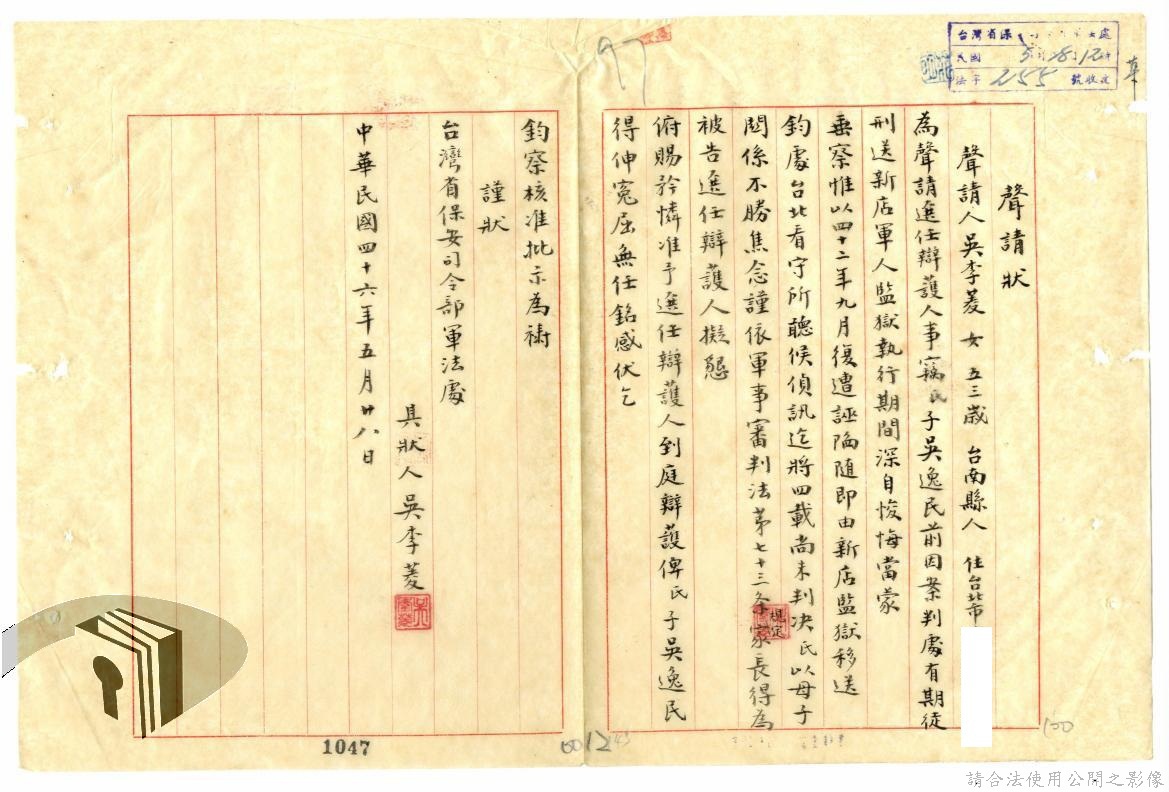 聲請狀
聲請人吳李菱 女 五三歲 台南縣人 住台北市
為聲請選任辯護人事竊氏子吳逸民前因案判處有期徒
刑送新店軍人監獄執行期間深自悛悔當蒙
垂察惟以四十二年九月復遭誣陷隨即由新店監獄移送
鈞處台北看守所聽候偵訊迄將四載尚未判决氏以母子
関係不勝焦念謹依軍事審判法第七十三条規定家長得為
被告選任辯護人擬懇
俯賜矜憐准予選任辯護人到庭辯護俾氏子吳逸民
得伸寃屈無任銘感伏乞
鈞察核准批示為禱
謹狀
台灣省保安司令部軍法處
具狀人 吳李菱
中華民國四十六年五月廿八日
97
台灣省保
處
民國
28
12
法字 255 號收文
1047
12
150
請合法使用公開之影像